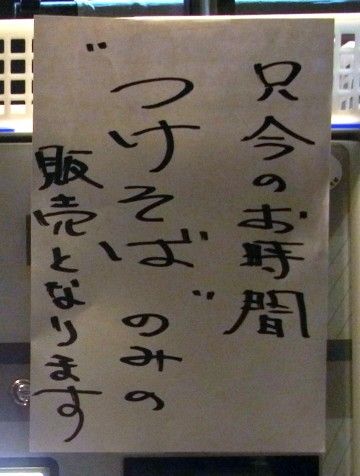 只今のお時間
"つけそば"のみの
販売となります